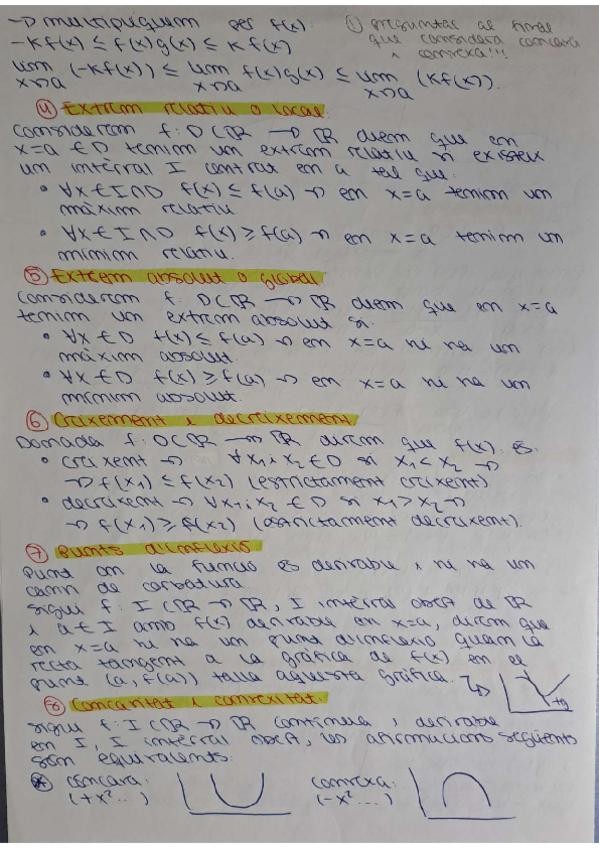 → multipliquem per f(x):
① preguntas al final
que considera concava
i convexa!!!
-Kf(x) ≤ f(x)g(x) ≤ Kf(x)
lim x→a (-Kf(x)) ≤ lim x→a f(x)g(x) ≤ lim x→a (Kf(x)).
④ Extrem relatiu o local
Considerem f: D⊂ℝ → ℝ diem que en
x=a ∈ D tenim un extrem relatiu si existeix
un interval I centrat en a tal que:
• ∀x∈I∩D f(x) ≤ f(a) → en x=a tenim un
màxim relatiu
• ∀x∈I∩D f(x) ≥ f(a) → en x=a tenim un
mínim relatiu.
⑤ Extrem absolut o global
Considerem f: D⊂ℝ → ℝ diem que en x=a
tenim un extrem absolut si:
• ∀x∈D f(x) ≤ f(a) → en x=a hi ha un
màxim absolut.
• ∀x∈D f(x) ≥ f(a) → en x=a hi ha un
mínim absolut.
⑥ Creixement i decreixement
Donada f: D⊂ℝ → ℝ direm que f(x) és:
• creixent → ∀x₁ i x₂ ∈ D si x₁ < x₂ →
→ f(x₁) ≤ f(x₂) (estrictament creixent)
• decreixent → ∀x₁ i x₂ ∈ D si x₁ > x₂ →
→ f(x₁) ≥ f(x₂) (estrictament decreixent).
⑦ Punts d'inflexió
Punt on la funció és derivable i hi ha un
canvi de curvatura.
Sigui f: I⊂ℝ → ℝ, I interval obert de ℝ
i a∈I amb f(x) derivable en x=a, direm que
en x=a hi ha un punt d'inflexió quan la
recta tangent a la gràfica de f(x) en el
punt (a, f(a)) talla aquesta gràfica. →
tg
⑧ Concavitat i convexitat.
Sigui f: I⊂ℝ → ℝ contínua i derivable
en I, I interval obert, les afirmacions següents
són equivalents:
* còncava: convexa:
(+x²...) (-x²...)